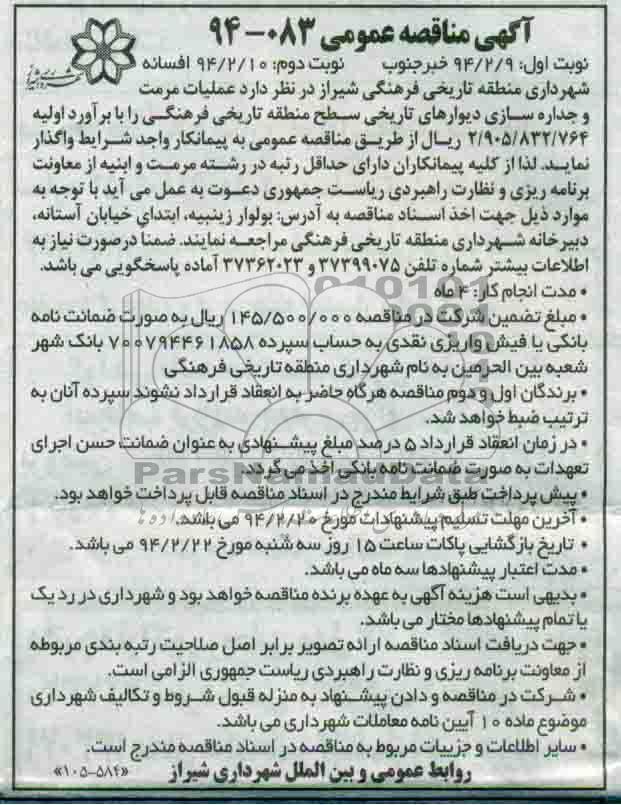 آگهی مناقصه عمومی ۰۸۳-۹۴
نوبت اول: ۹۴/۲/۹ خبرجنوب نوبت دوم: ۹۴/۲/۱۰ افسانه
شهرداری منطقه تاریخی فرهنگی شیراز در نظر دارد عملیات مرمت
و جداره سازی دیوارهای تاریخی سطح منطقه تاریخی فرهنگی را با برآورد اولیه
۲/۹۰۵/۸۳۲/۷۶۴ ریال از طریق مناقصه عمومی به پیمانکار واجد شرایط واگذار
نماید. لذا از کلیه پیمانکاران دارای حداقل رتبه در رشته مرمت و ابنیه از معاونت
برنامه ریزی و نظارت راهبردی ریاست جمهوری دعوت به عمل می آید با توجه به
موارد ذیل جهت اخذ اسناد مناقصه به آدرس: بولوار زینبیه، ابتدای خیابان آستانه،
دبیرخانه شهرداری منطقه تاریخی فرهنگی مراجعه نمایند. ضمنا درصورت نیاز به
اطلاعات بیشتر شماره تلفن ۳۷۳۹۹۰۷۵ و ۳۷۳۶۲۰۲۳ آماده پاسخگویی می باشد.
• مدت انجام کار: ۴ ماه
• مبلغ تضمین شرکت در مناقصه ۱۴۵/۵۰۰/۰۰۰ ریال به صورت ضمانت نامه
بانکی یا فیش واریزی نقدی به حساب سپرده ۷۰۰۷۹۴۴۶۱۸۵۸ بانک شهر
شعبه بین الحرمین به نام شهرداری منطقه تاریخی فرهنگی
• برندگان اول و دوم مناقصه هرگاه حاضر به انعقاد قرارداد نشوند سپرده آنان به
ترتیب ضبط خواهد شد.
• در زمان انعقاد قرارداد ۵ درصد مبلغ پیشنهادی به عنوان ضمانت حسن اجرای
تعهدات به صورت ضمانت نامه بانکی اخذ می گردد.
ParsNamadData
• پیش پرداخت طبق شرایط مندرج در اسناد مناقصه قابل پرداخت خواهد بود.
• آخرین مهلت تسلیم پیشنهادات مورخ ۹۴/۲/۲۰ می باشد.
• تاریخ بازگشایی پاکات ساعت ۱۵ روز سه شنبه مورخ ۹۴/۲/۲۲ می باشد.
• مدت اعتبار پیشنهادها سه ماه می باشد.
• بدیهی است هزینه آگهی به عهده برنده مناقصه خواهد بود و شهرداری در رد یک
یا تمام پیشنهادها مختار می باشد.
• جهت دریافت اسناد مناقصه ارائه تصویر برابر اصل صلاحیت رتبه بندی مربوطه
از معاونت برنامه ریزی و نظارت راهبردی ریاست جمهوری الزامی است.
• شرکت در مناقصه و دادن پیشنهاد به منزله قبول شروط و تکالیف شهرداری
موضوع ماده ۱۰ آیین نامه معاملات شهرداری می باشد.
• سایر اطلاعات و جزییات مربوط به مناقصه در اسناد مناقصه مندرج است.
روابط عمومی و بین الملل شهرداری شیراز «۱۰۵-۵۸۴»